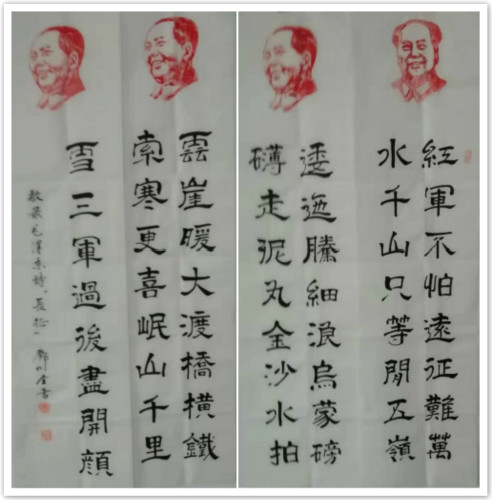 紅軍不怕遠征難萬
水千山只等閒五嶺
逶迤騰細浪烏蒙磅
礴走泥丸金沙水拍
雲崖暖大渡橋橫鐵
索寒更喜岷山千里
雪三軍過後盡開顔
敬录毛澤东詩“長征”